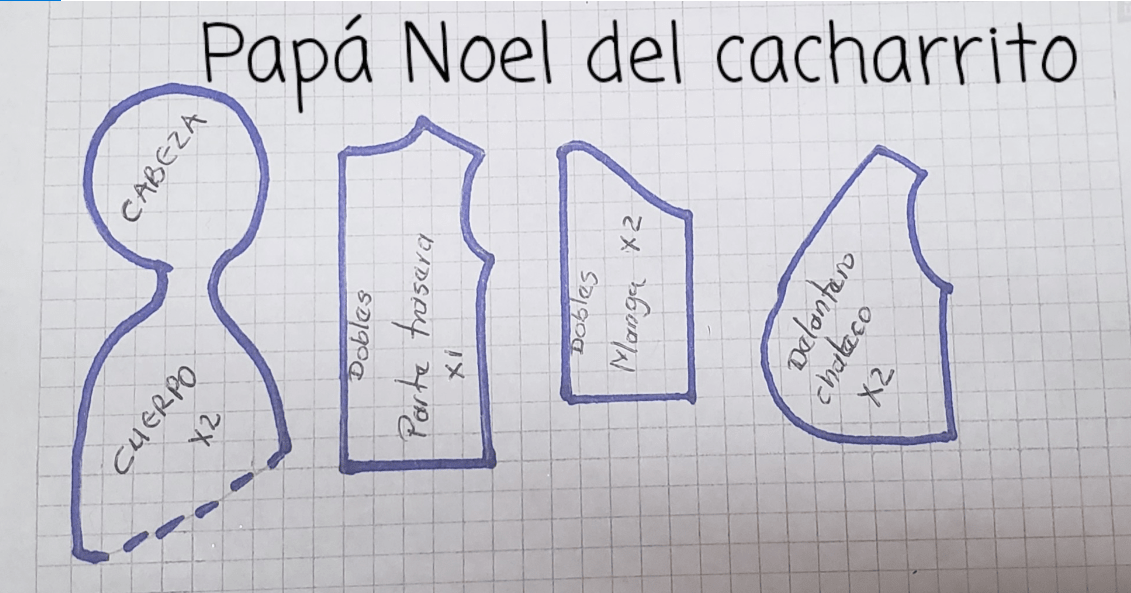 Papá Noel del cacharrito
CABEZA
CUERPO
X2
Dobles
Parte trasera
X1
Dobles
Manga X2
Delantero
chaleco
X2